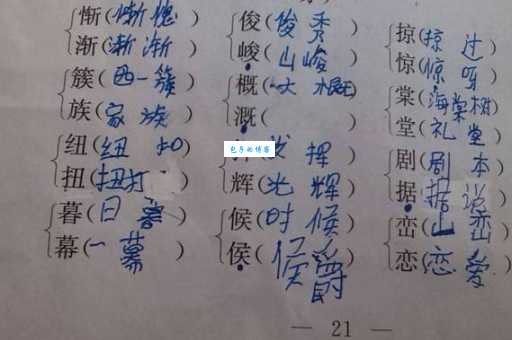 惭(惭愧)
渐(渐渐)
簇(一簇)
族(家族)
纽(纽扣)
扭(扭打)
暮(日暮)
幕(一幕)
俊(俊秀)
峻(山峻)
概(大概)
溉(
包子的博客
挥)
辉(光辉)
候(时候)
侯(侯爵)
掠(掠过)
惊(惊呀)
棠(海棠树)
堂(礼堂)
剧(剧本)
据(据说)
峦(山峦)
恋(恋爱)
— 21 —